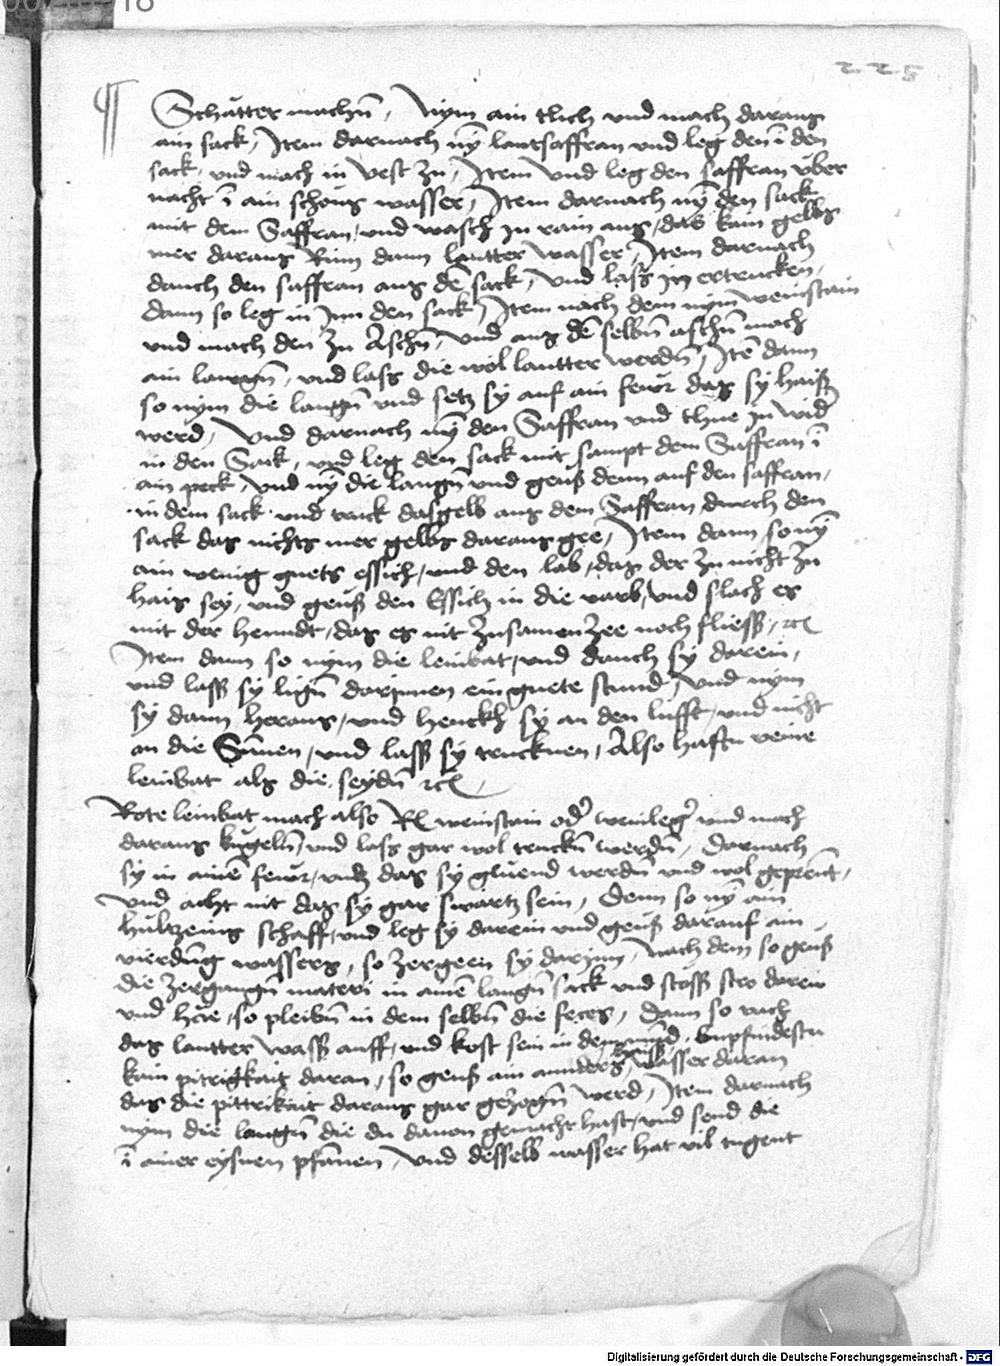 225
Schatter machn̄, Nym ain tuch und mach daraus
ain sack, Item darnach nȳ lantsaffran und leg den ī den
sack, und mach in vest zu, Item und leg den saffran über
nacht ī ain schöns wasser, Item darnach nȳ den sack
mit dem Saffran, und wasch in rain aus, das kain gelbs
mer daraus Rinn dann lautter wasser, Item darnach
den saffran aus dē sack, und lass in ertrucken,
dann so leg in Inn den sack, Item nach dem nym weinstain
und mach den zu Aschn̄, und aus dē selbn̄ aschn̄ mach
ain laugn̄, und lass die wol lautter werdn̄, Itē dann
so nym die laugn̄ und setz sy auf ain fewr das sy haiss
werd, Und darnach nȳ den Saffran und thue in wider
in den Sack, und leg den sack mit sampt dem Saffran ī
ain peck, und nȳ die laugn̄ und geuß denn auf den saffran,
in dem sack und truck das gelb aus dem Saffran durch den
sack das nichts mer gelbs daraus gee, Item dann so nȳ
ain wenig guets essich, und den lab, das der zu nicht zu
hais sey, und geuß den Essich in die varb, und slach es
mit der henndt, das es nit zusamen zee noch fliess, ꝛcͣ
Item dann so nym die leinbat, und dauch sy darein,
und lass sy lign̄ darinnen ein guete stund, und nym
sy dann heraus, und henckh sy an den lufft, und nicht
an die Sunnen, und lass sy trucknen, Also hastu
leinbat als die seydn̄ ꝛcͣ
Rote leinbat mach also Rͨ weinstain oder weinleger und mach
daraus kugelln̄ und lass gar wol truckn̄ werdn̄, Darnach
sy in ainē fewr, untz das sy gluend werdn̄ und wol geprent,
und acht nit das sy gar swartz sein, Denn so nȳ ain
hultzeins schaff, und leg sy darein und geuß darauf ain
vierdung wassers, so zergeen sy darinn, Nach dem so geuß
die zergangn̄ materi in ainē langn̄ sack und stoss stro darein
und hew, so pleibn̄ in dem selbn̄ die feces, Dann so vach
das lautter wass auff, und kost sein in dem mūd, Empfindestu
kain pitrigkait daran, so geuß ain annders haiss wasser daran
das die pittrikait daraus gar gezogn̄ werd, Item darnach
nym die laugn̄ die du davon gemacht hast, und send die
ī ainer eysnen pfannen, Und desselb wasser hat vil tugent
Digitalisierung gefördert durch die Deutsche Forschungsgemeinschaft - DFG